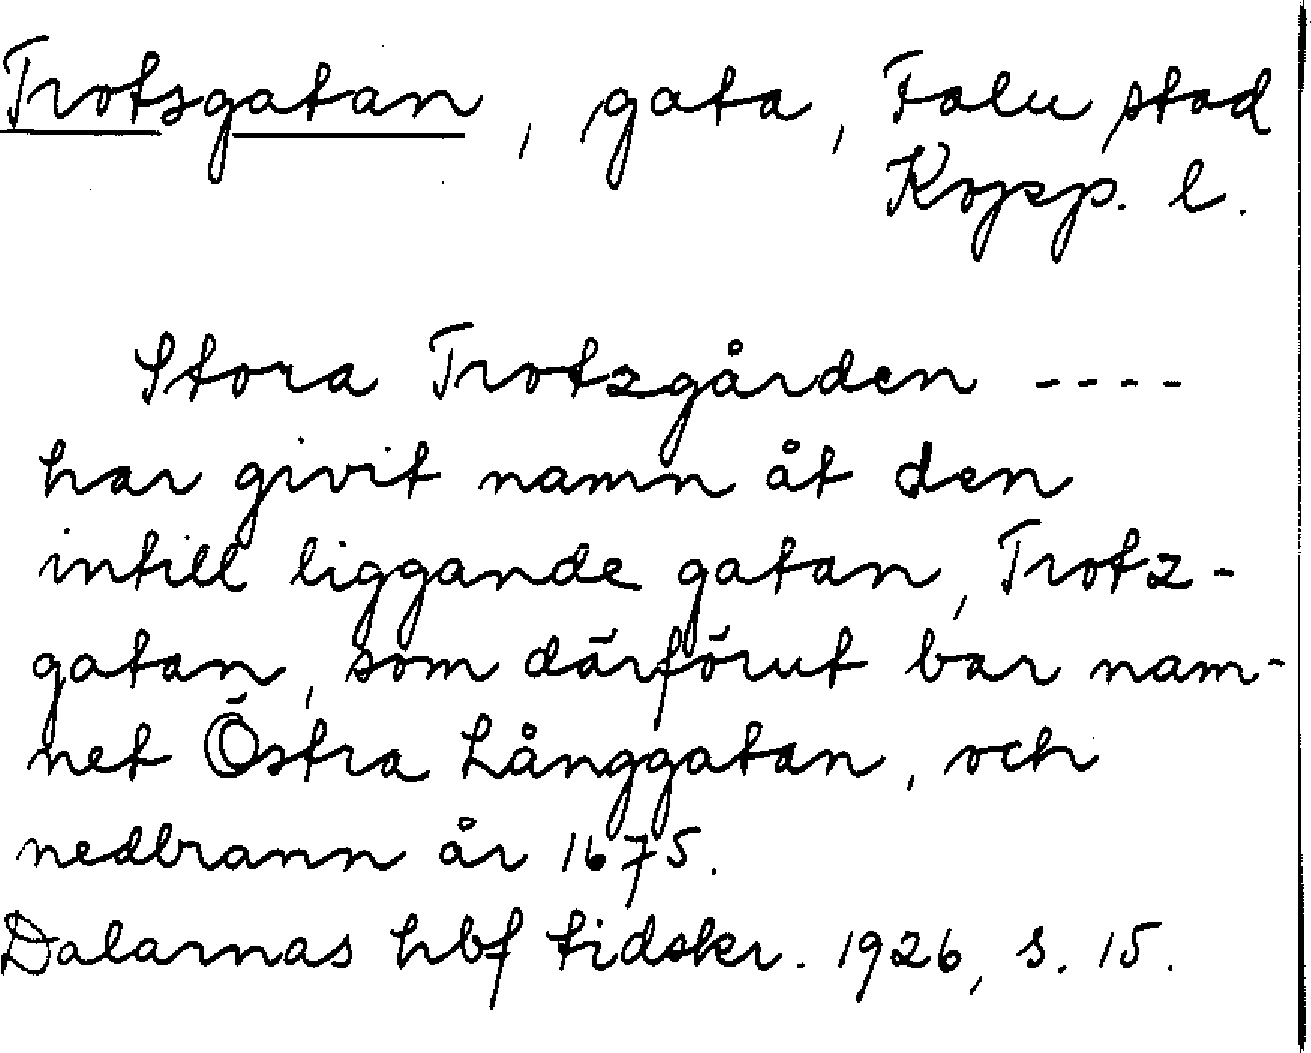 Trotsgatan, gata, Falu stad
Kopp. l.
Stora Trotzgården ----
har givit namn åt den
intill liggande gatan, Trotz-
gatan, som därförut bar nam-
net Östra Långgatan, och
nedbrann år 1675.
Dalarnas hbf tidskr. 1926, s. 15.